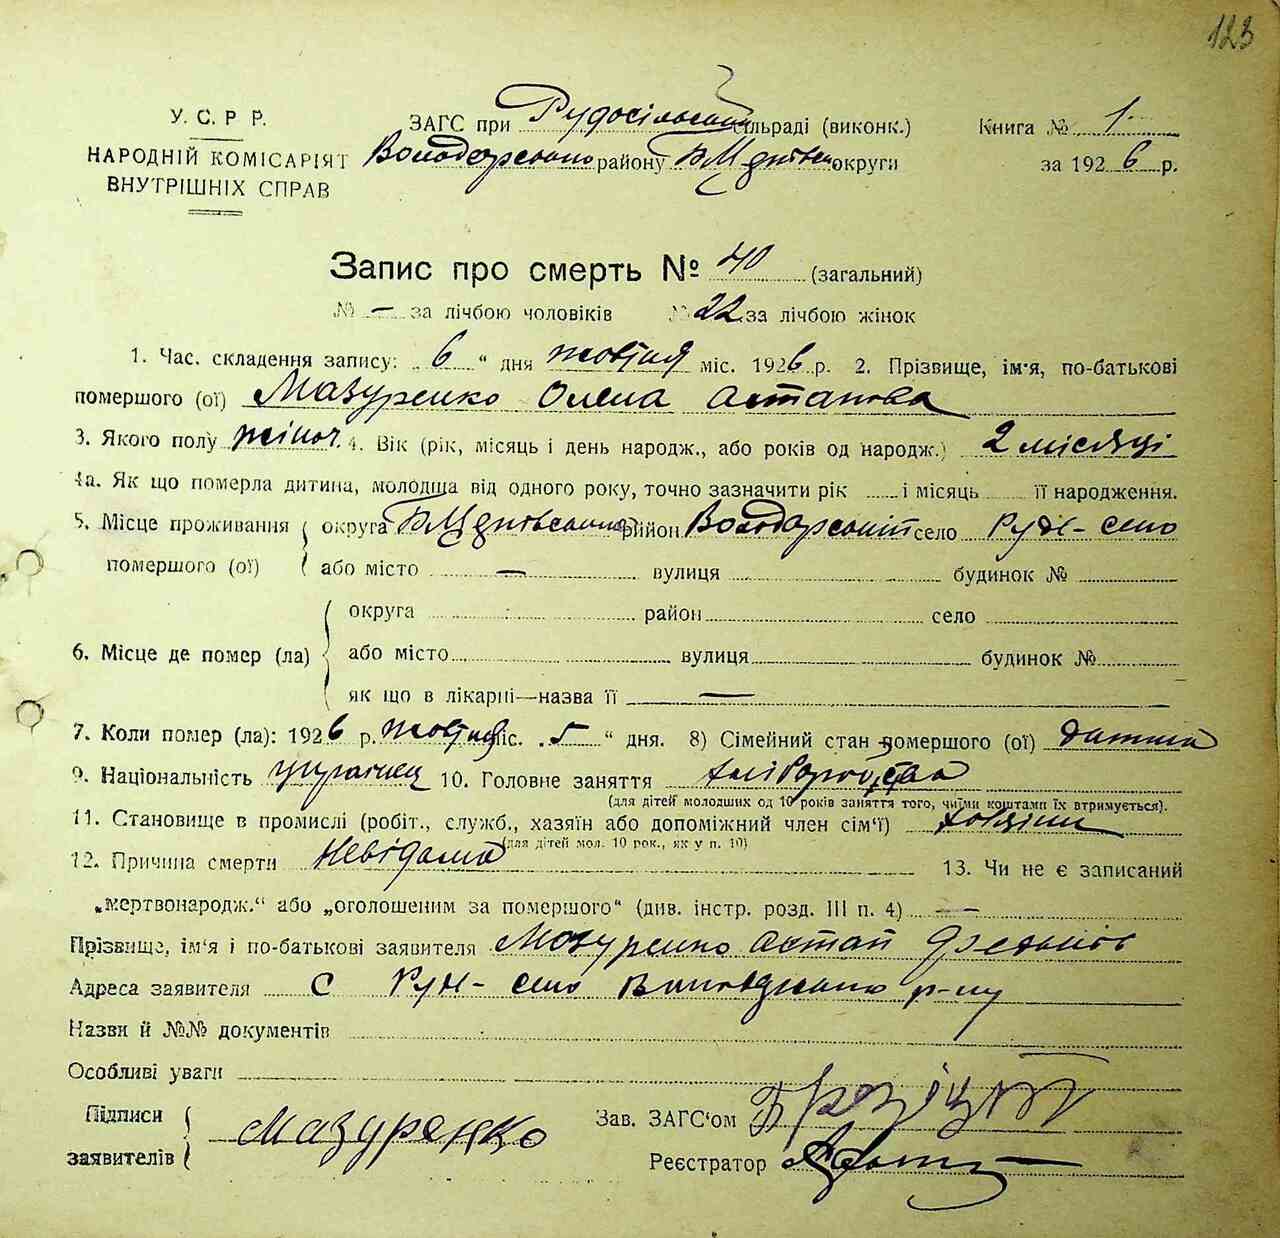 123
У. С. Р. Р.
НАРОДНІЙ КОМІСАРІЯТ
ВНУТРІШНІХ СПРАВ
ЗАГС при Рудосільській сільраді (виконк.)
Володарського району Б Цдківської округи
Книга № 1
за 1926 р.
Запис про смерть № 40 (загальний)
№ — за лічбою чоловіків № 22 за лічбою жінок
1. Час. складення запису: „6“ дня жовтня міс. 1926 р. 2. Прізвище, ім'я, по-батькові
помершого (ої) Мазуренко Олена Остапова
3. Якого полу жіноч. 4. Вік (рік, місяць і день народж., або років од народж.) 2 місяці
4а. Як що померла дитина, молодша від одного року, точно зазначити рік і місяць її народження.
5. Місце проживання помершого (ої) округа район Володарський село Руде-село
або місто — вулиця будинок №
6. Місце де помер (ла) округа район село
або місто вулиця будинок №
як що в лікарні—назва її —
7. Коли помер (ла): 1926 р. жовтня міс. „5“ дня. 8) Сімейний стан помершого (ої) дитина
9. Національність українец 10. Головне заняття хліборобство
(для дітей молодших од 10 років заняття того, чиїми коштами їх втримується).
11. Становище в промислі (робіт., служб., хазяїн або допоміжний член сім'ї) хазяїн
(для дітей мол. 10 рок., як у п. 10)
12. Причина смерти Невідома 13. Чи не є записаний
„мертвонародж.“ або „оголошеним за помершого“ (див. інстр. розд. III п. 4) —
Прізвище, ім'я і по-батькові заявителя Мазуренко Остап
Адреса заявителя с Руде-село р-ну
Назви й №№ документів
Особливі уваги
Підписи заявителів Мазуренко
Зав. ЗАГС'ом
Реєстратор